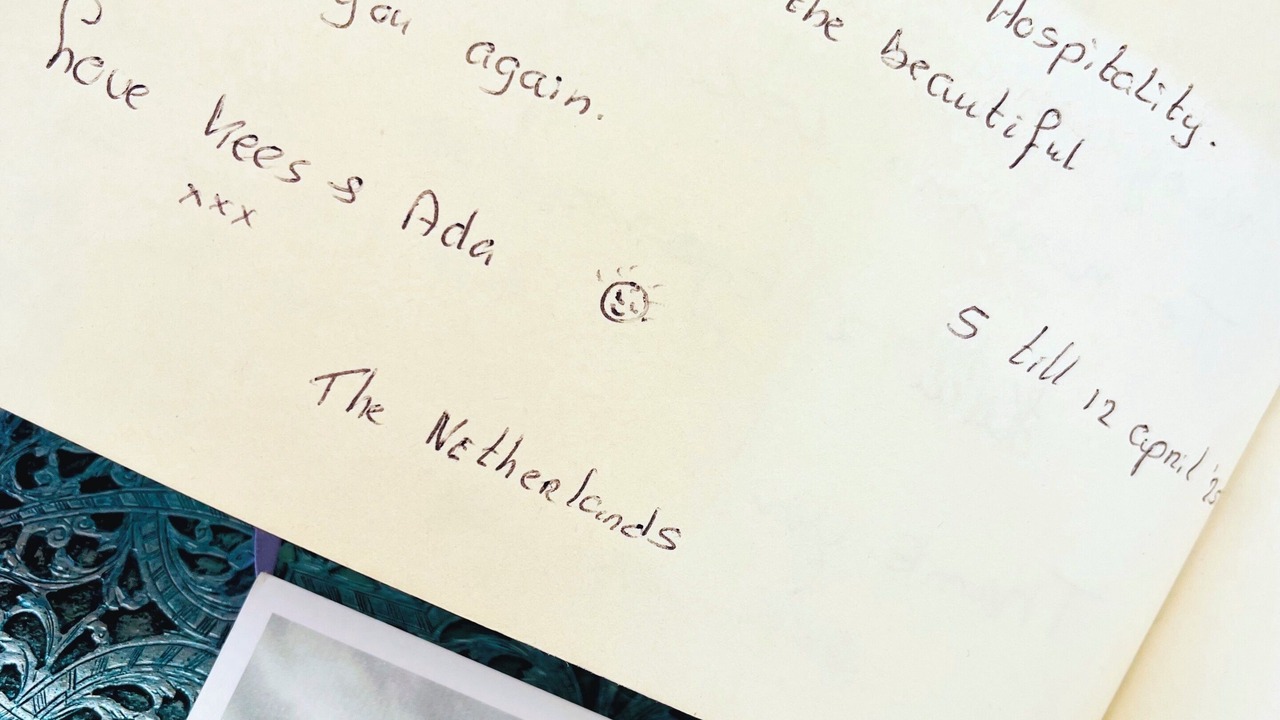 Hospitality.
the beautiful
you again.
Kees & Ada
xxx
5 till 12 april '25
The Netherlands